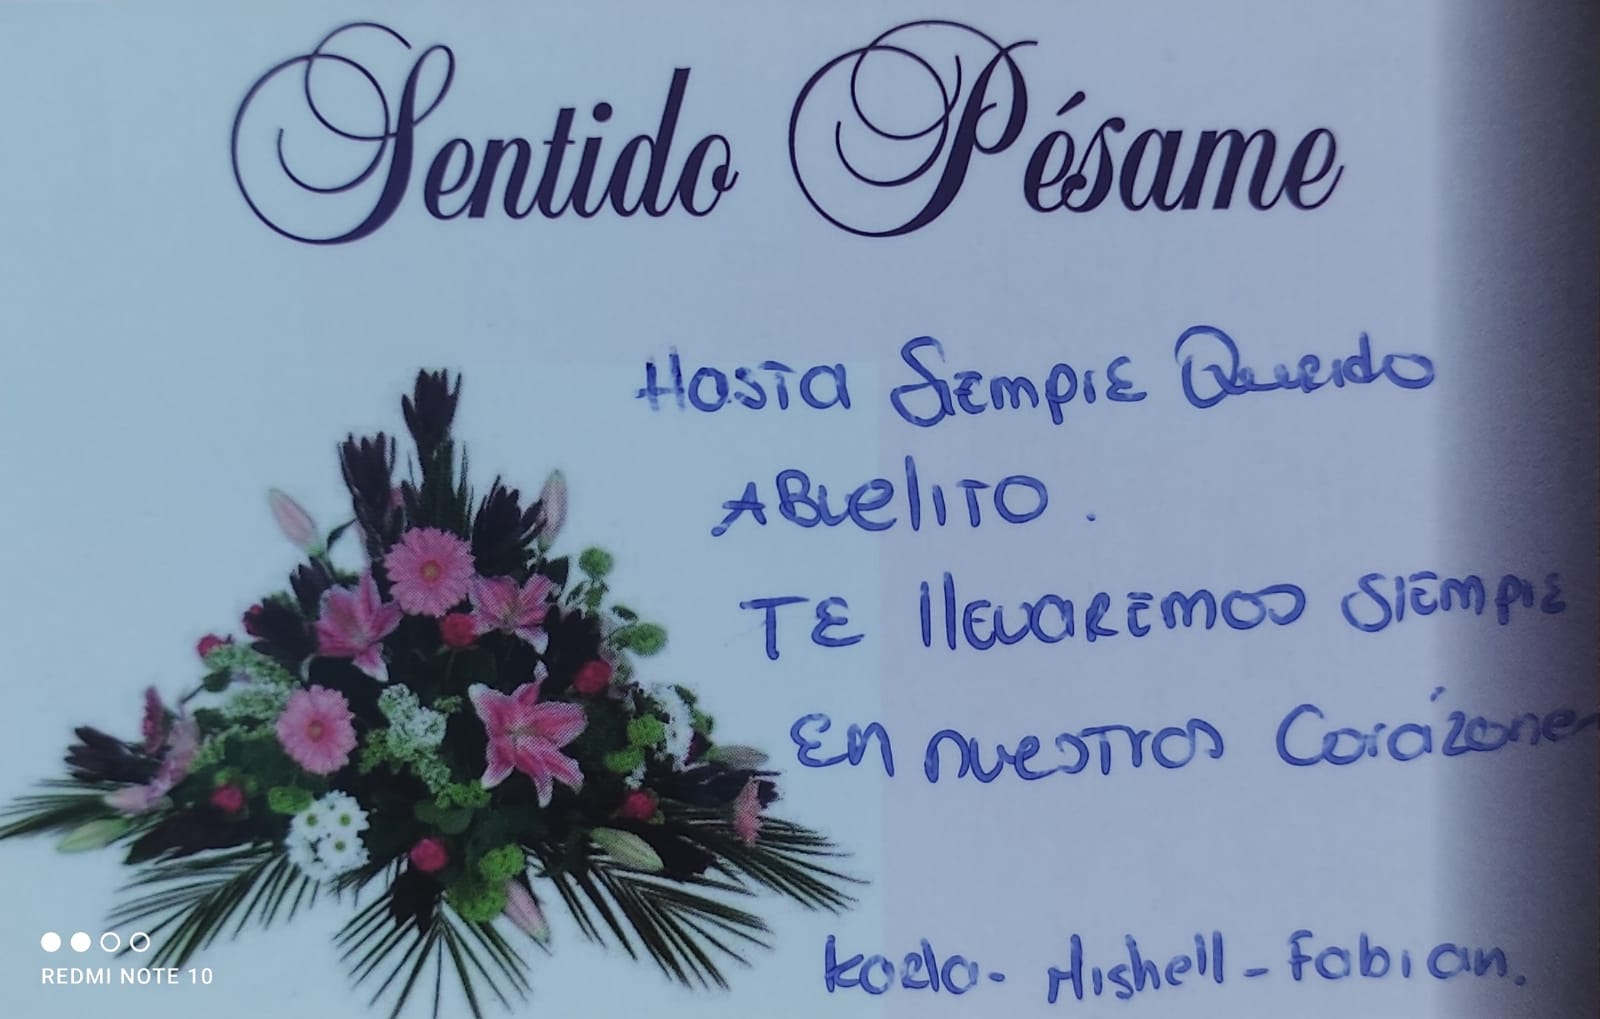 Sentido Pésame
Hasta Siempre Querido
Abuelito.
Te llevaremos siempre
en nuestros Corázones
Karla - Mishell - Fabian.
REDMI NOTE 10